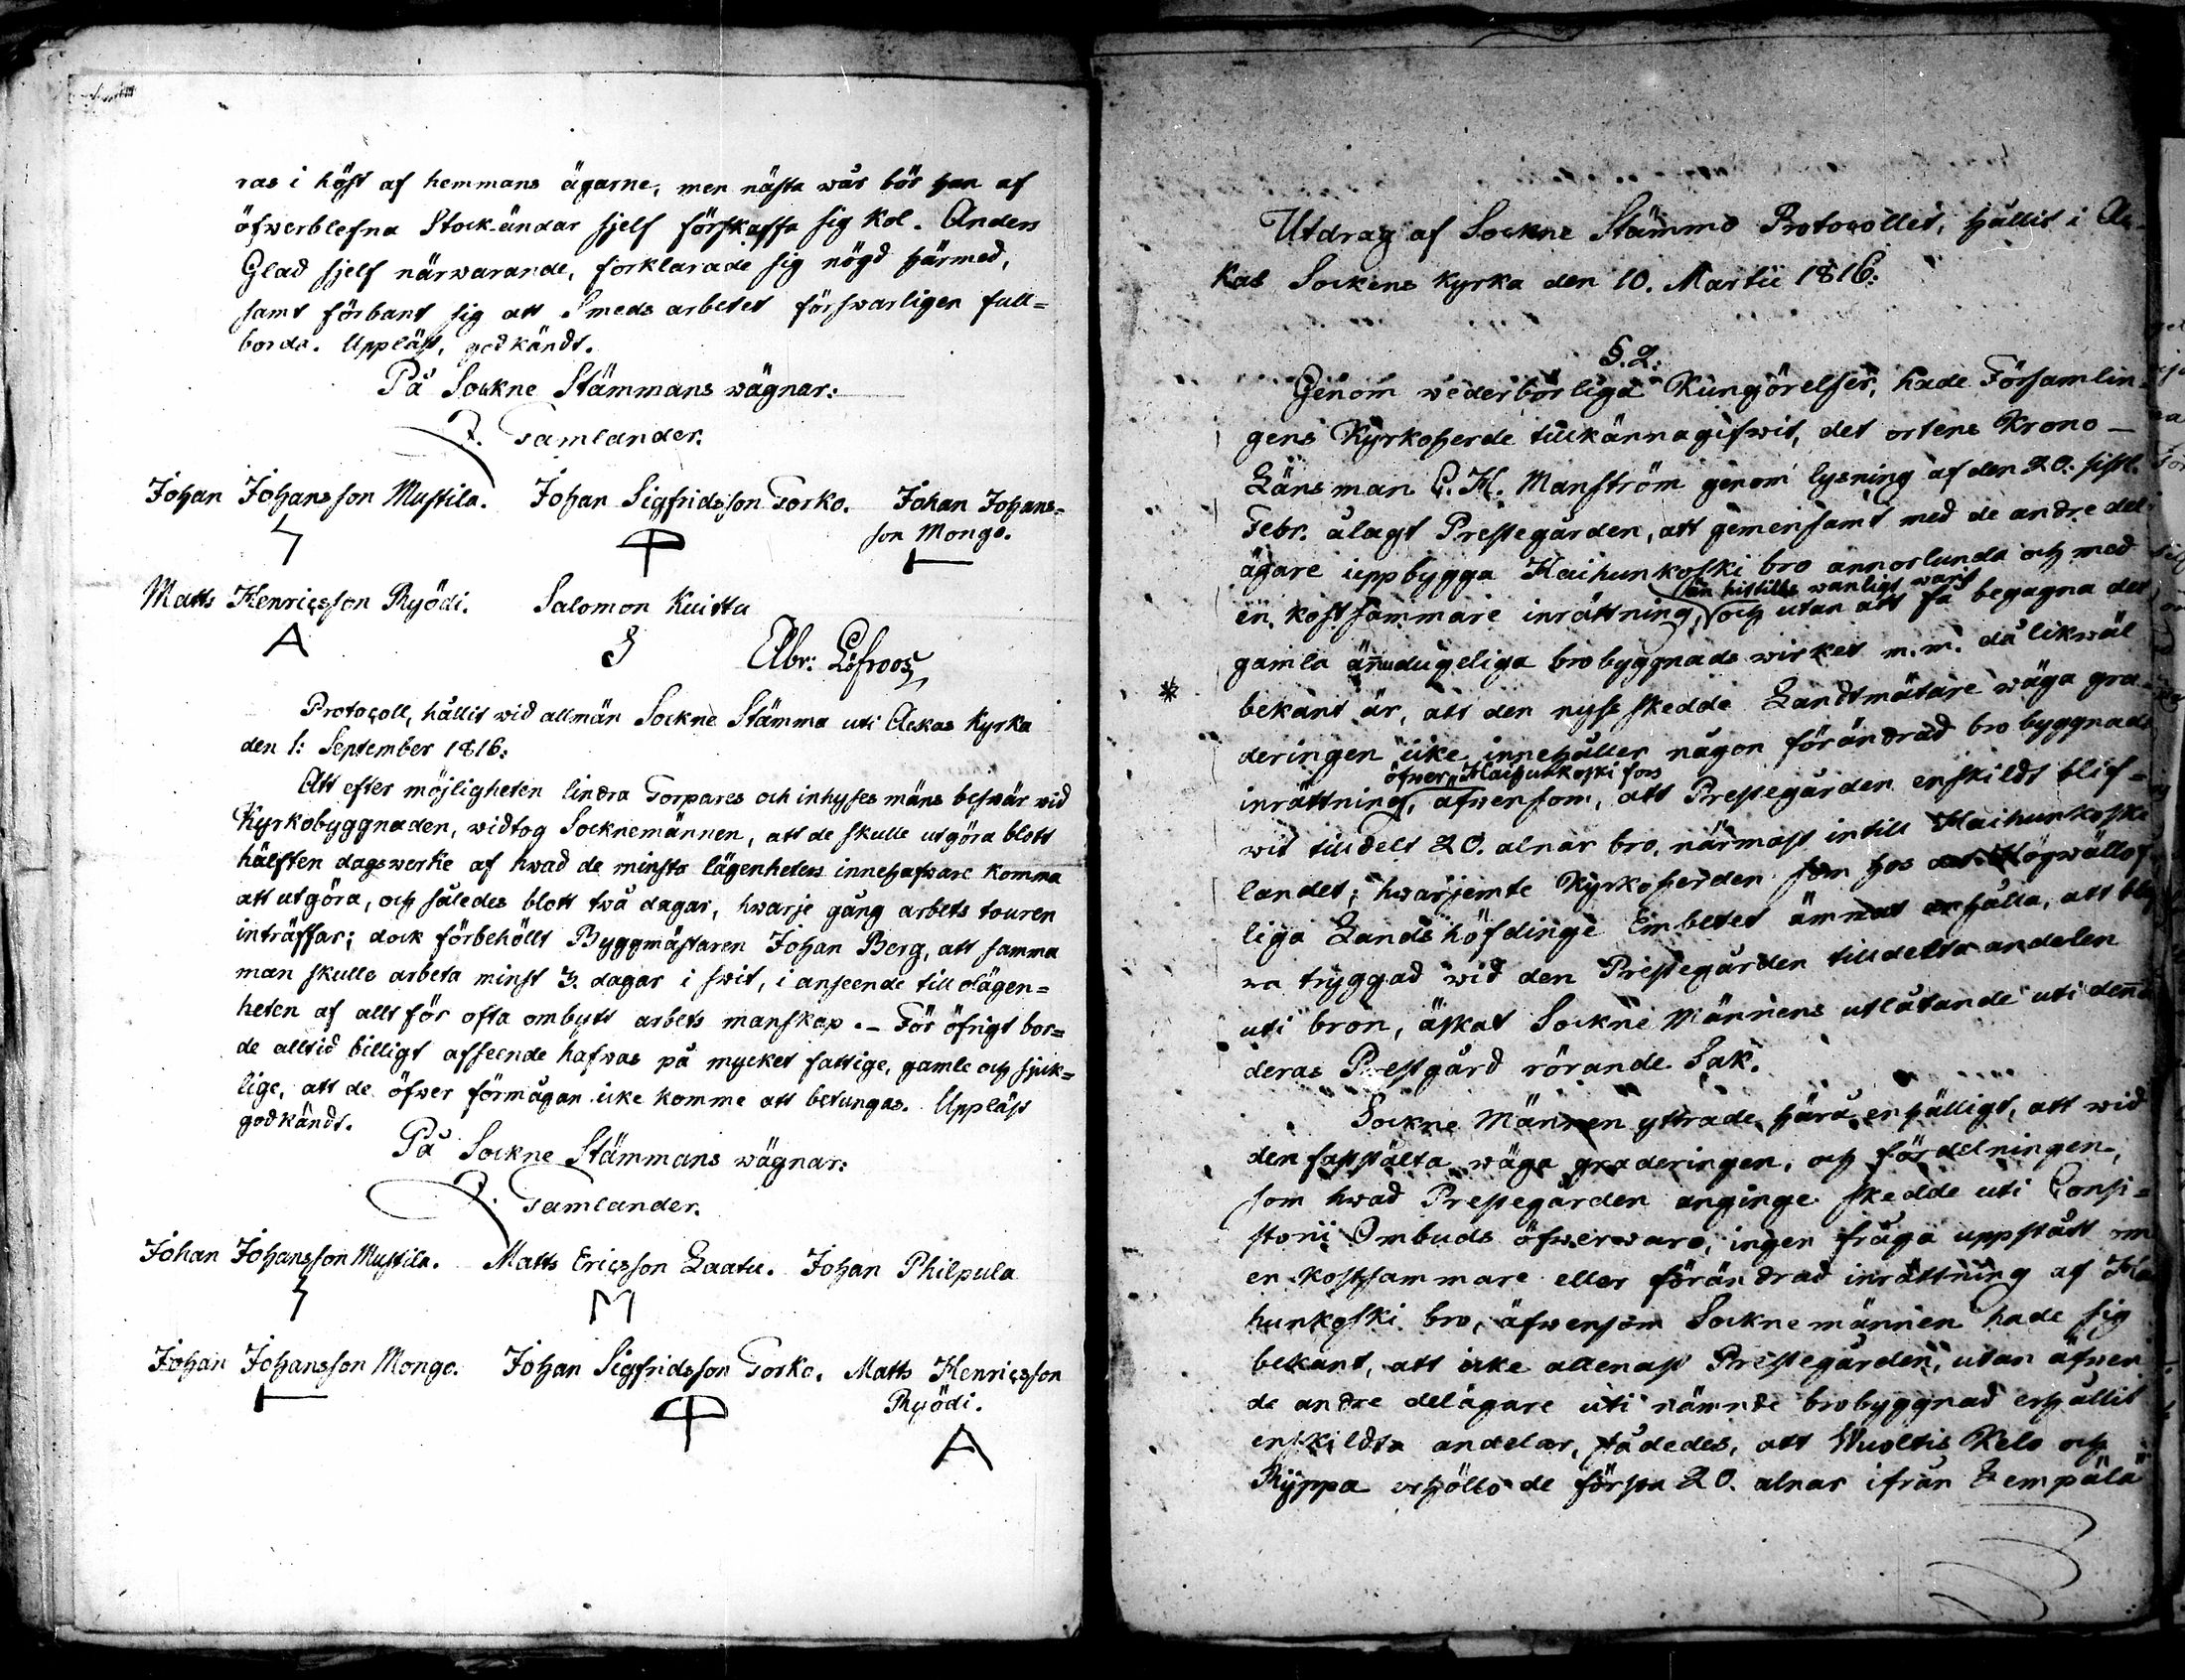 ras i höst af hemmans ägarne, men nästa wår bör han af
öfwerblefna Stock-ändar sjelf förskaffa sig Kol. Anders
Glad sjelf närwarande, förklarade sig nögd härmed,
samt förbant sig att Smeds arbetet förswarligen full=
borda. Uppläst, godkändt.
På Sockne Stämmans wägnar:
F. Tamlander.
Johan Johansson Mustila. Johan Sigfridsson Torko. Johan Johans=
son Mongo.
Matts Henricsson Ryödi. Salomon Kuittu
A
Abr: Löfroos
Protocoll, hållit wid allmän Sockne Stämma uti Ackas Kyrka
den 1: September 1816:
Att efter möjligheten lindra Torpares och inhyses mäns beswär wid
Kyrkobyggnaden, widtog Socknemännen, att de skulle utgöra blott
hälften dagswerke af hwad de minsta lägenheters innehafware komma
att utgöra, och således blott twå dagar, hwarje gång arbets touren
inträffar; dock förbehöllt Byggmästaren Johan Berg, att samma
man skulle arbeta minst 3. dagar i swit, i anseende till olägen=
heten af allt för ofta ombytt arbets manskap. – För öfrigt bor=
de alltid billigt afseende hafwas på mycket fattige, gamle och sjuk=
lige, att de öfwer förmågan icke komme att betungas. Uppläst
godkändt.
På Sockne Stämmans wägnar:
F. Tamlander.
Johan Johansson Mustila. Matts Ericsson Laatu. Johan Philpula
M
Johan Johansson Mongo. Johan Sigfridsson Torko. Matts Henricsson
Ryödi.
A
Utdrag af Sockne Stämmo Protocollet, hållit i Ac-
kas Sockens Kyrka den 10. Martii 1816:
§. 2.
Genom wederbörliga Kungörelser, hade Församlin-
gens Kyrkoherde tillkännagifwit, det ortens Krono-
Länsman C. H. Manström genom lysning af den 20. sistl.
Febr. ålagt Prestegården, att gemensamt med de andre del-
ägare uppbygga Haihunkoski bro annorlunda och med
än hittills wanligt warit
en kostsammare inrättning, och utan att få begagna det
gamla ännudugeliga brobyggnads wirket m.m. då likwäl
* bekant är, att den nyss skedde Landtmätare wäga gra-
deringen icke innehåller någon förändrad brobyggnads
öfwer Haihunkoski fors
inrättning, äfwensom, att Prestegården enskildt blif-
wit tilldelt 20. alnar bro, närmast intill Haihunkoski
landet; hwarjemte Kyrkoherden som hos Högwällof-
liga Landshöfdinge Embetet ämnat anhålla, att bli
wa tryggad wid den Prestegården tilldelta andelen
uti bron, äskat Sockne Männens utlåtande uti denna
deras Prestgård rörande Sak.
Sockne Männen yttrade härå enhälligt, att wid
den fastställta wäga graderingen, och fördelningen,
som hwad Prestegården anginge skedde uti Consi=
storii Ombuds öfwerwaro, ingen fråga uppstått om
en kostsammare eller förändrad inrättning af Hai
hunkoski bro, äfwensom Socknemännen hade sig
bekant, att icke allenast Prestegården, utan äfwen
de andre delägare uti nämnde brobyggnad erhållit
enskildta andelar, sådedes, att Wuoltis Kelo och
Ryppa erhöllo de första 20. alnar ifrån Lempälä